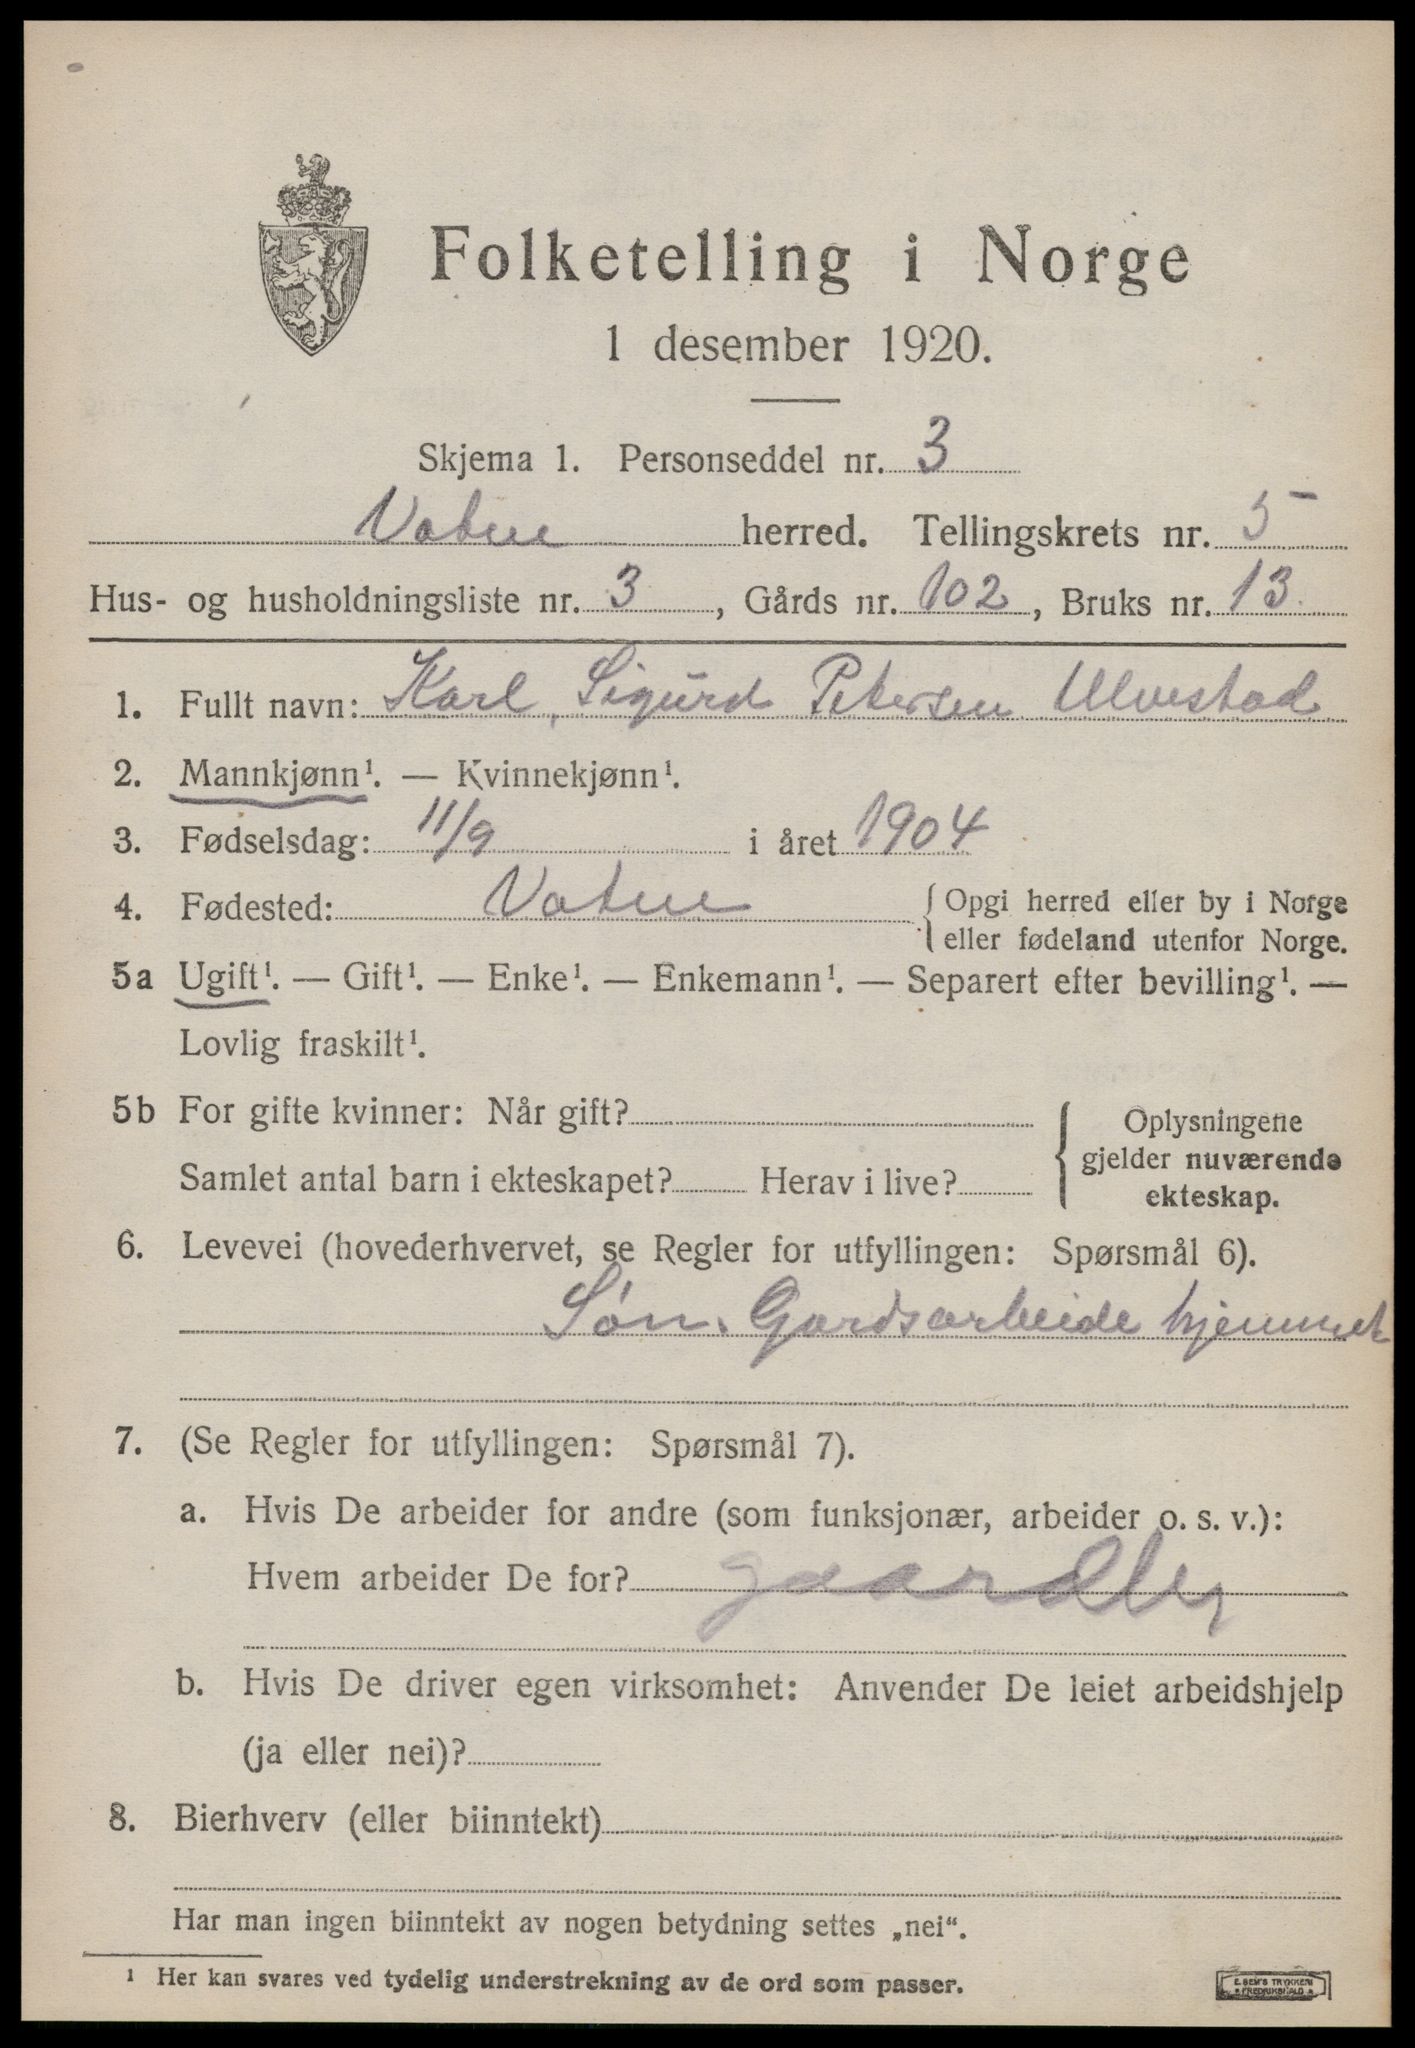 Folketelling i Norge
1 desember 1920.
Skjema 1. Personseddel nr. 3
Vatne herred. Tellingskrets nr. 5
Hus- og husholdningsliste nr. 3, Gårds nr. 102, Bruks nr. 13
1. Fullt navn: Karl, Sigurd Petersen Ulvestad
2. Mannkjønn¹. — Kvinnekjønn¹.
3. Fødselsdag: 11/9 i året 1904
4. Fødested: Vatne { Opgi herred eller by i Norge
eller fødeland utenfor Norge.
5a Ugift¹. — Gift¹. — Enke¹. — Enkemann¹. — Separert efter bevilling¹. —
Lovlig fraskilt¹.
5b For gifte kvinner: Når gift? { Oplysningene
gjelder nuværende
Samlet antal barn i ekteskapet? Herav i live? ekteskap.
6. Levevei (hovederhvervet, se Regler for utfyllingen: Spørsmål 6).
Søn. Gardsarbeide hjemmet
7. (Se Regler for utfyllingen: Spørsmål 7).
a. Hvis De arbeider for andre (som funksjonær, arbeider o. s. v.):
Hvem arbeider De for?
b. Hvis De driver egen virksomhet: Anvender De leiet arbeidshjelp
(ja eller nei)?
8. Bierhverv (eller biinntekt)
Har man ingen biinntekt av nogen betydning settes „nei“.
¹ Her kan svares ved tydelig understrekning av de ord som passer.
E. SEM'S TRYKKERI
FREDRIKSHALD